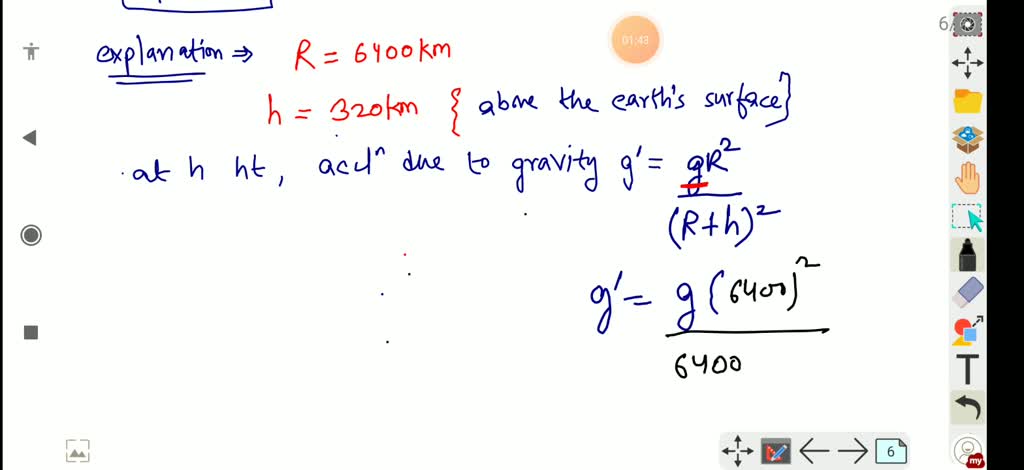 6/
01:48
explanation ⇒ R = 6400km
h = 320km { above the earth's surface}
at h ht, accⁿ due to gravity g' = gR²
(R+h)²
g' = g (6400)²
6400
T
6
my